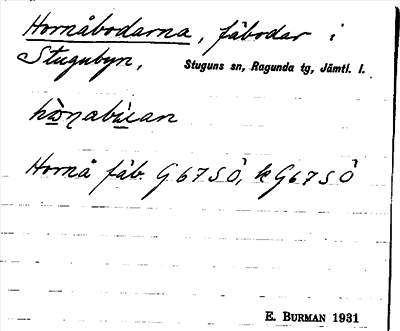 Hornåbodarna, fäbodar i
Stugubyn, Stuguns sn, Ragunda tg, Jämtl. l.
Hornå fäb. G 67 S Ö, k G 67 S Ö
E. BURMAN 1931